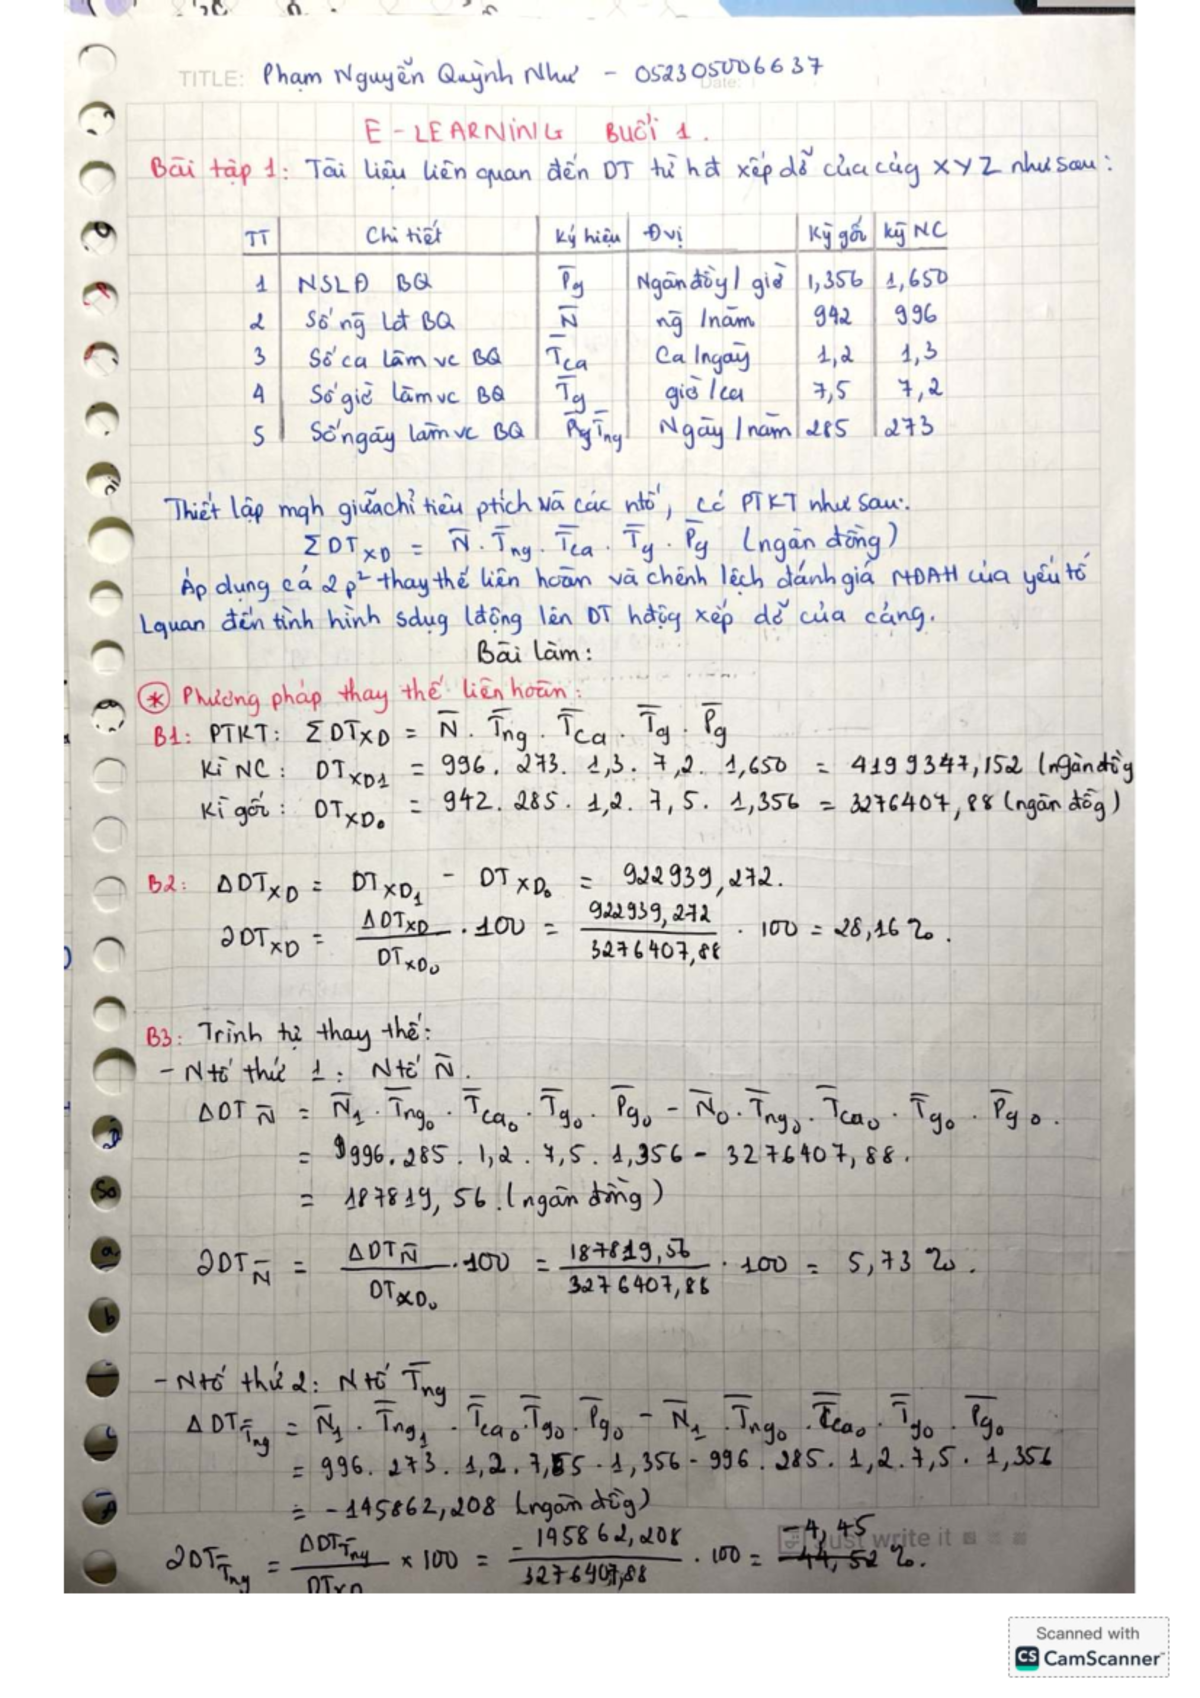 TITLE: Phạm Nguyễn Quỳnh Như - 052305006637
Date:
E-LEARNING BUỔI 1.
Bài tập 1: Tài liệu liên quan đến DT từ hđ xếp dỡ của cảg XYZ như sau:
TT Chi tiết Ký hiệu Đvị Kỳ gốc kỳ NC
1 NSLĐ BQ P̄g Ngàn đồg/giờ 1,356 1,650
2 Số ng̃ lđ BQ N̄ ng̃/năm 942 996
3 Số ca làm vc BQ T̄ca Ca/ngày 1,2 1,3
4 Số giờ làm vc BQ T̄g giờ/ca 7,5 7,2
5 Số ngày làm vc BQ T̄ng Ngày/năm 285 273
Thiết lập mqh giữa chỉ tiêu ptích và các ntố, có PTKT như sau:
ΣDTXD = N̄ . T̄ng . T̄ca . T̄g . P̄g (ngàn đồng)
Áp dụng cả 2 p² thay thế liên hoàn và chênh lệch đánh giá MĐAH của yếu tố
Lquan đến tình hình sdụg lđộng lên DT hđộg xếp dỡ của cảng.
Bài làm:
* Phương pháp thay thế liên hoàn:
B1: PTKT: ΣDTXD = N̄ . T̄ng . T̄ca . T̄g . P̄g
Kì NC: DTXD1 = 996. 273. 1,3. 7,2. 1,650 = 4199347,152 (ngàn đồg
Kì gốc: DTXD0 = 942. 285. 1,2. 7,5. 1,356 = 3276407,88 (ngàn đồg)
B2: ΔDTXD = DTXD1 - DTXD0 = 922939,272.
∂DTXD = ΔDTXD / DTXD0 . 100 = 922939,272 / 3276407,88 . 100 = 28,16%.
B3: Trình tự thay thế:
- Ntố thứ 1: Ntố N̄.
ΔDTN̄ = N̄1 . T̄ng0 . T̄ca0 . T̄g0 . P̄g0 - N̄0 . T̄ng0 . T̄ca0 . T̄g0 . P̄g0.
= 996. 285. 1,2. 7,5. 1,356 - 3276407,88.
= 187819,56. (ngàn đồng)
∂DTN̄ = ΔDTN̄ / DTXD0 . 100 = 187819,56 / 3276407,88 . 100 = 5,73%.
- Ntố thứ 2: Ntố T̄ng
ΔDTT̄ng = N̄1 . T̄ng1 . T̄ca0 . T̄g0 . P̄g0 - N̄1 . T̄ng0 . T̄ca0 . T̄g0 . P̄g0
= 996. 273. 1,2. 7,5. 1,356 - 996. 285. 1,2. 7,5. 1,356
= -145862,208 (ngàn đồg)
∂DTT̄ng = ΔDTT̄ng / DTXD × 100 = -145862,208 / 3276407,88 . 100 = -4,45%.
Just write it
Scanned with
CS CamScanner